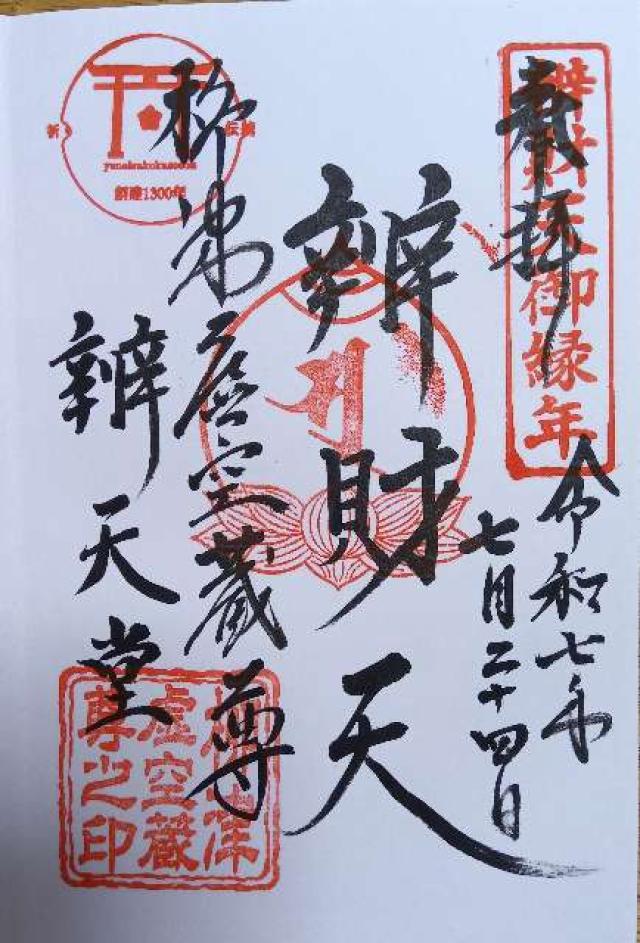 奉拝
辨財天御縁年
令和七年
七月二十四日
辨財天
柳津虚空蔵尊
辨天堂
創建1300年
柳津
虚空蔵
尊之印